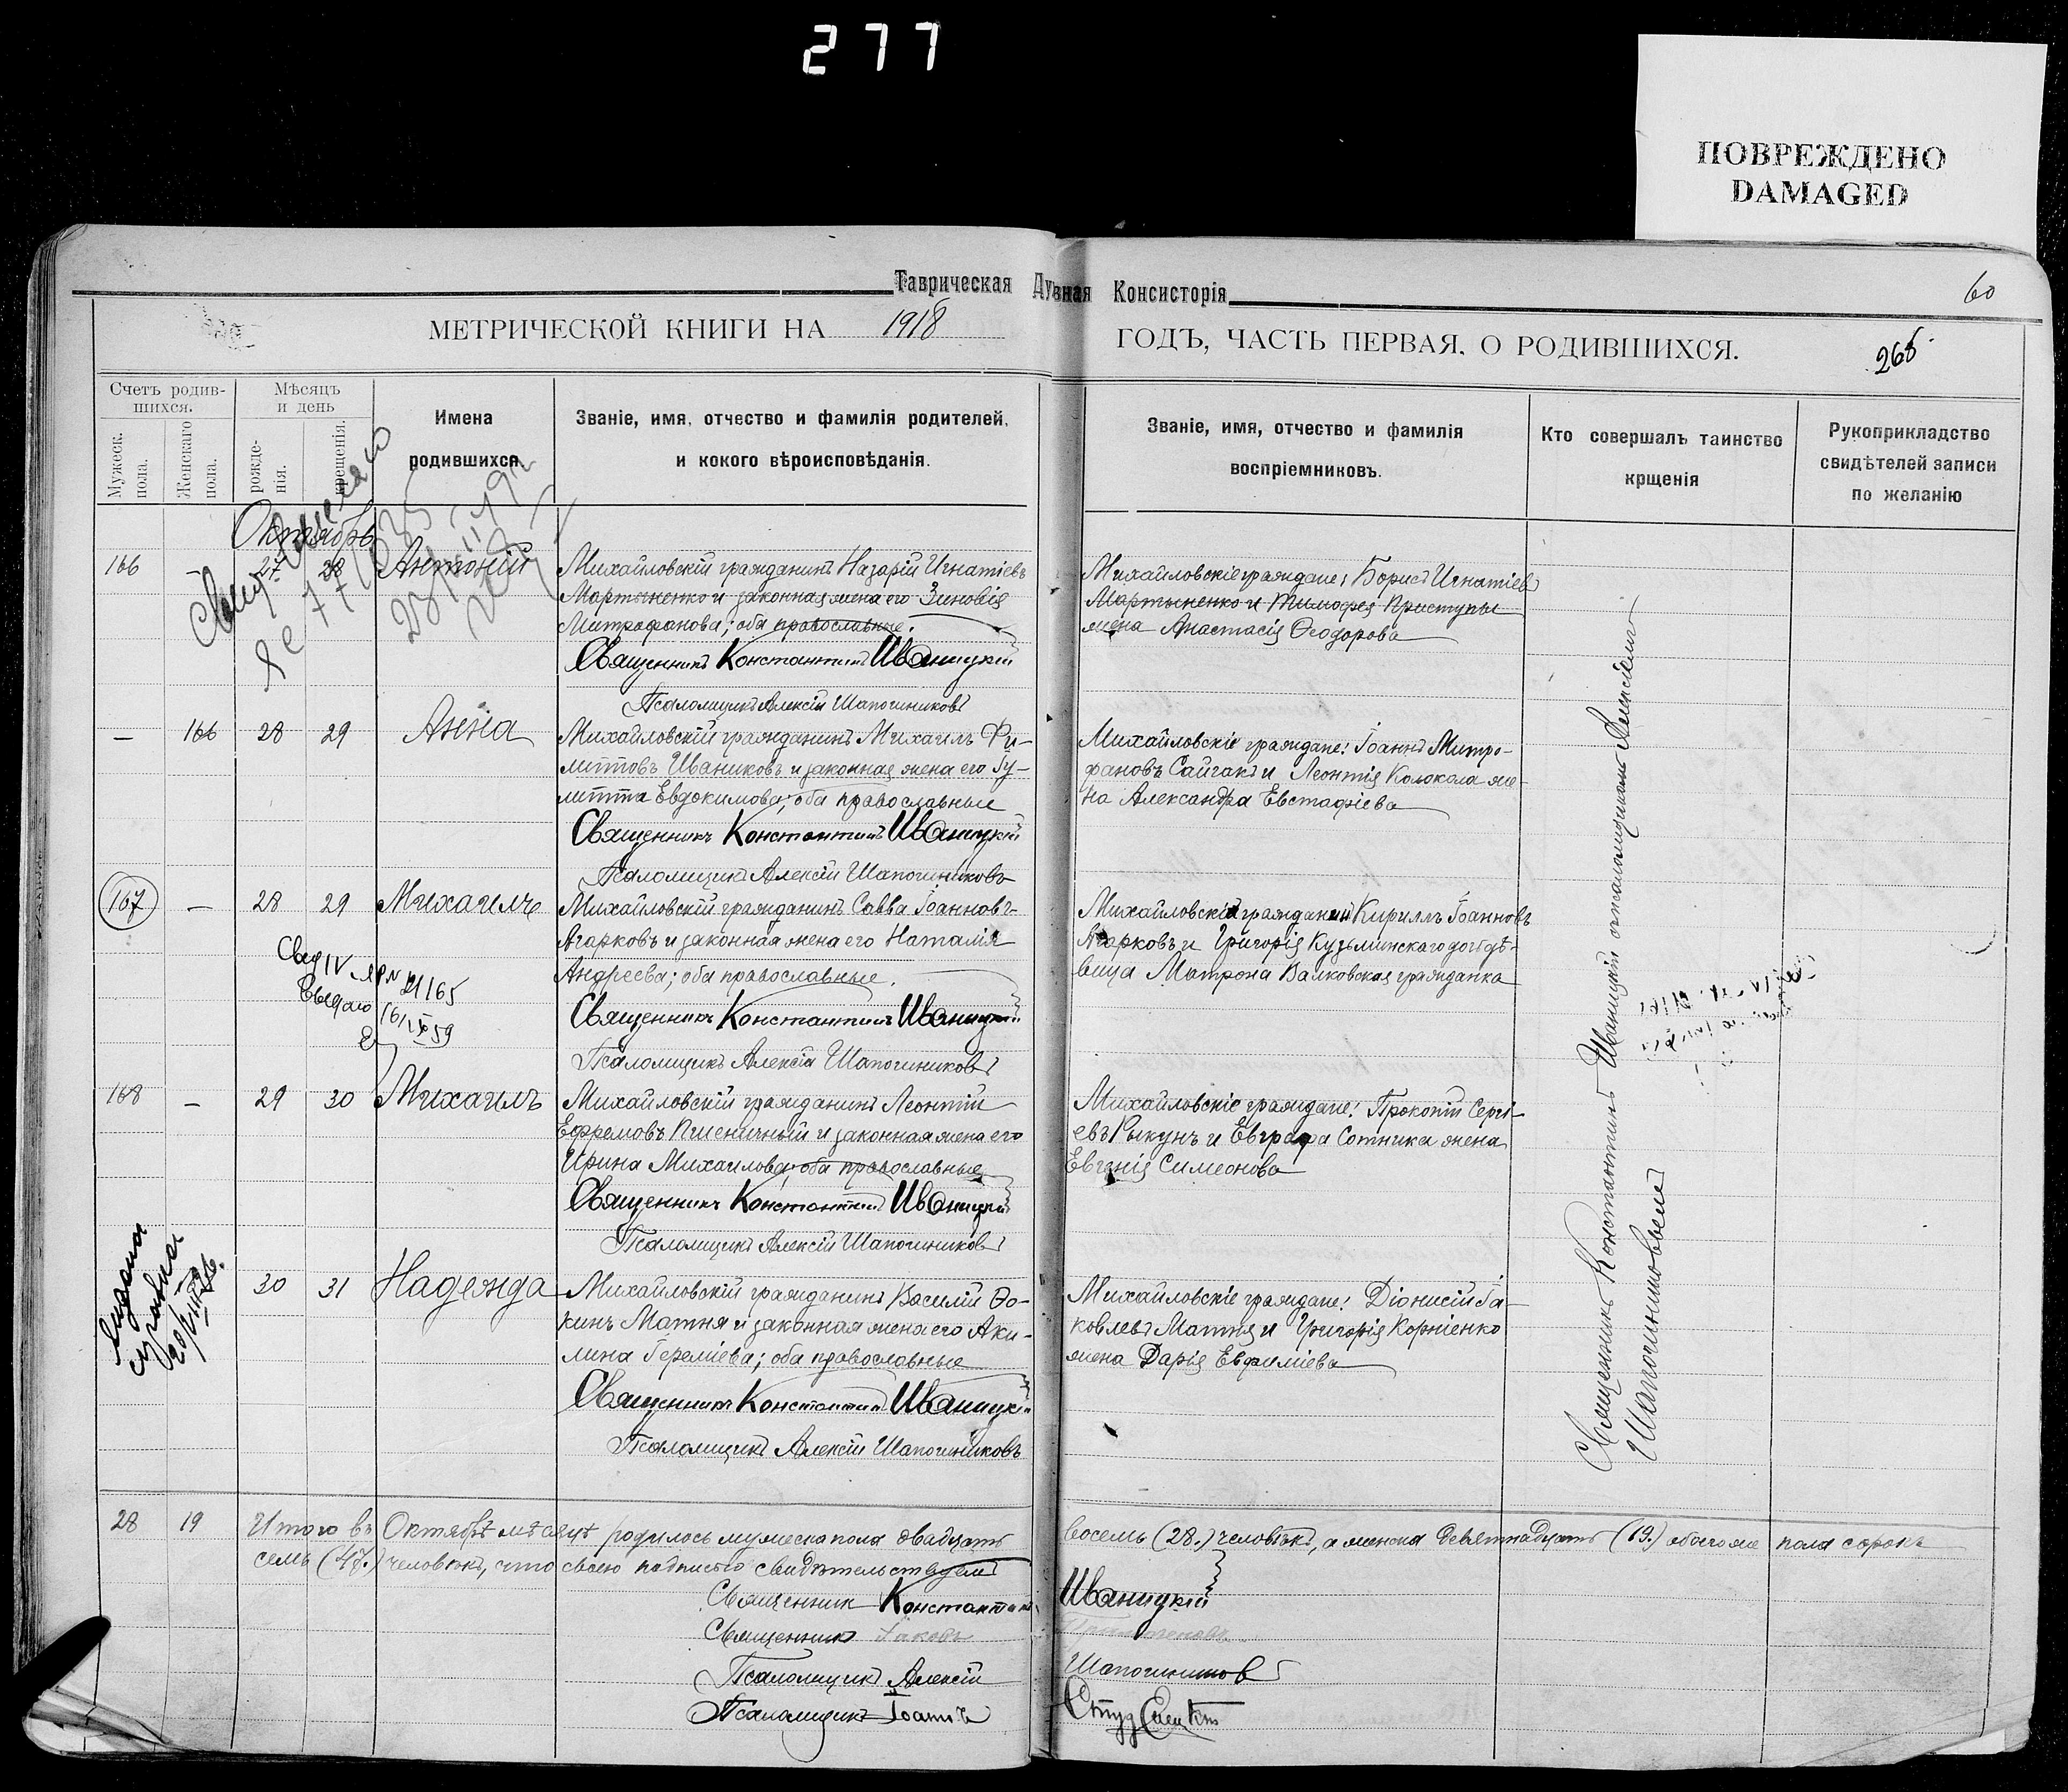 277
ПОВРЕЖДЕНО
DAMAGED
Таврическая Духовная Консисторія
60
МЕТРИЧЕСКОЙ КНИГИ НА 1918 ГОДЪ, ЧАСТЬ ПЕРВАЯ, О РОДИВШИХСЯ.
268
Счетъ родив-
шихся.
Мужеск.
пола.
Женскаго
пола.
Мѣсяцъ
и день
рожде-
нія.
крещенія.
Имена
родившихся
Званіе, имя, отчество и фамилія родителей,
и кокого вѣроисповѣданія.
Званіе, имя, отчество и фамилія
воспріемниковъ.
Кто совершалъ таинство
крщенія
Рукоприкладство
свидѣтелей записи
по желанію
Октябрь
166 – 27 28 Антоній
Михайловскій гражданинъ Назарій Игнатіевъ
Мартыненко и законная жена его Зиновія
Митрофанова; оба православные.
Священникъ Константинъ Иваницкій
Псаломщикъ Алексій Шапошниковъ
Михайловскіе граждане: Борисъ Игнатіевъ
Мартыненко и Тимофея Приступы
жена Анастасія Ѳеодорова
— 166 28 29 Анна
Михайловскій гражданинъ Михаилъ Фи-
липповъ Иваниковъ и законная жена его Іу-
литта Евдокимова; оба православные
Священникъ Константинъ Иваницкій
Псаломщикъ Алексій Шапошниковъ
Михайловскіе граждане: Іоаннъ Митро-
фановъ Сайгакъ и Леонтія Колокола же-
на Александра Евстафіева
167 — 28 29 Михаилъ
Михайловскій гражданинъ Савва Іоанновъ
Агарковъ и законная жена его Наталія
Андреева; оба православные.
Священникъ Константинъ Иваницкій
Псаломщикъ Алексій Шапошниковъ
Михайловскій гражданинъ Кирилъ Іоанновъ
Агарковъ и Григорія Кузьминскаго дочь дѣ-
вица Матрона Валковская гражданка
21165
168 – 29 30 Михаилъ
Михайловскій гражданинъ Леонтій
Ефремовъ Пшеничный и законная жена его
Ирина Михаилова; оба православные
Священникъ Константинъ Иваницкій
Псаломщикъ Алексій Шапошниковъ
Михайловскіе граждане: Прокопій Сергі-
евъ Рыкунъ и Евграфа Сотника жена
Евгенія Симеонова
30 31 Надежда
Михайловскій гражданинъ Василій Ѳо-
кинъ Матня и законная жена его Аки-
лина Іереміева; оба православные
Священникъ Константинъ Иваницкій
Псаломщикъ Алексій Шапошниковъ
Михайловскіе граждане: Діонисій Іа-
ковлевъ Матня и Григорія Корніенко
жена Дарія Евфиміева
выдана
справка
Священникъ Константинъ Иваницкій съ псаломщикомъ Алексіемъ
Шапошниковымъ
28 19 Итого въ Октябрѣ мѣсяцѣ родилось мужеска пола двадцать восемь (28.) человѣкъ, а женска девятнадцать (19.) обоего же пола сорокъ
семь (47.) человѣкъ, что своею подписью свидѣтельствуемъ
Священникъ Константинъ Иваницкій
Священникъ Іаковъ
Псаломщикъ Алексій Шапошниковъ
Псаломщикъ Іоаннъ